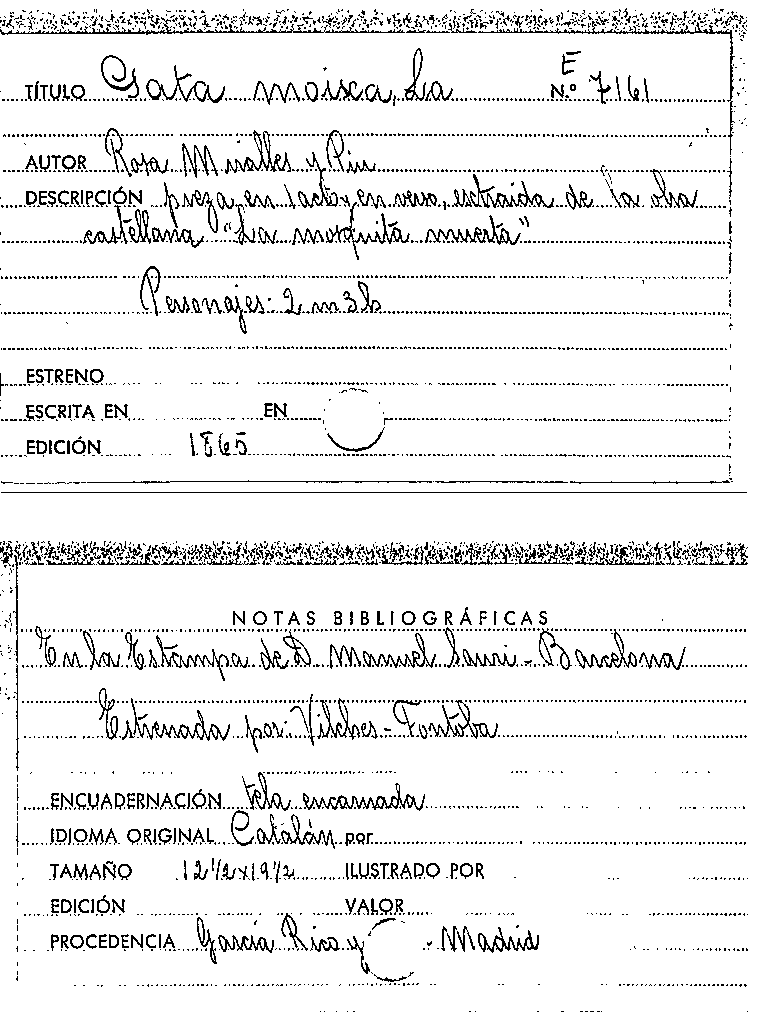 TÍTULO Gata moixa, La E
N.º 7161
AUTOR Rosa Miralles y Piu
DESCRIPCIÓN pieza, en 1 acto y en verso, extraida de la obra
castellana "La mosquita muerta"
Personajes: 2 m 3 h
ESTRENO
ESCRITA EN EN
EDICIÓN 1865
NOTAS BIBLIOGRÁFICAS
En la Estampa de D. Manuel Sauri - Barcelona
Estrenada por: Vilches - Fontoba
ENCUADERNACIÓN tela encarnada
IDIOMA ORIGINAL Catalán por
TAMAÑO 12 1/2 x 19 1/2 ILUSTRADO POR
EDICIÓN VALOR
PROCEDENCIA García Rico y - Madrid